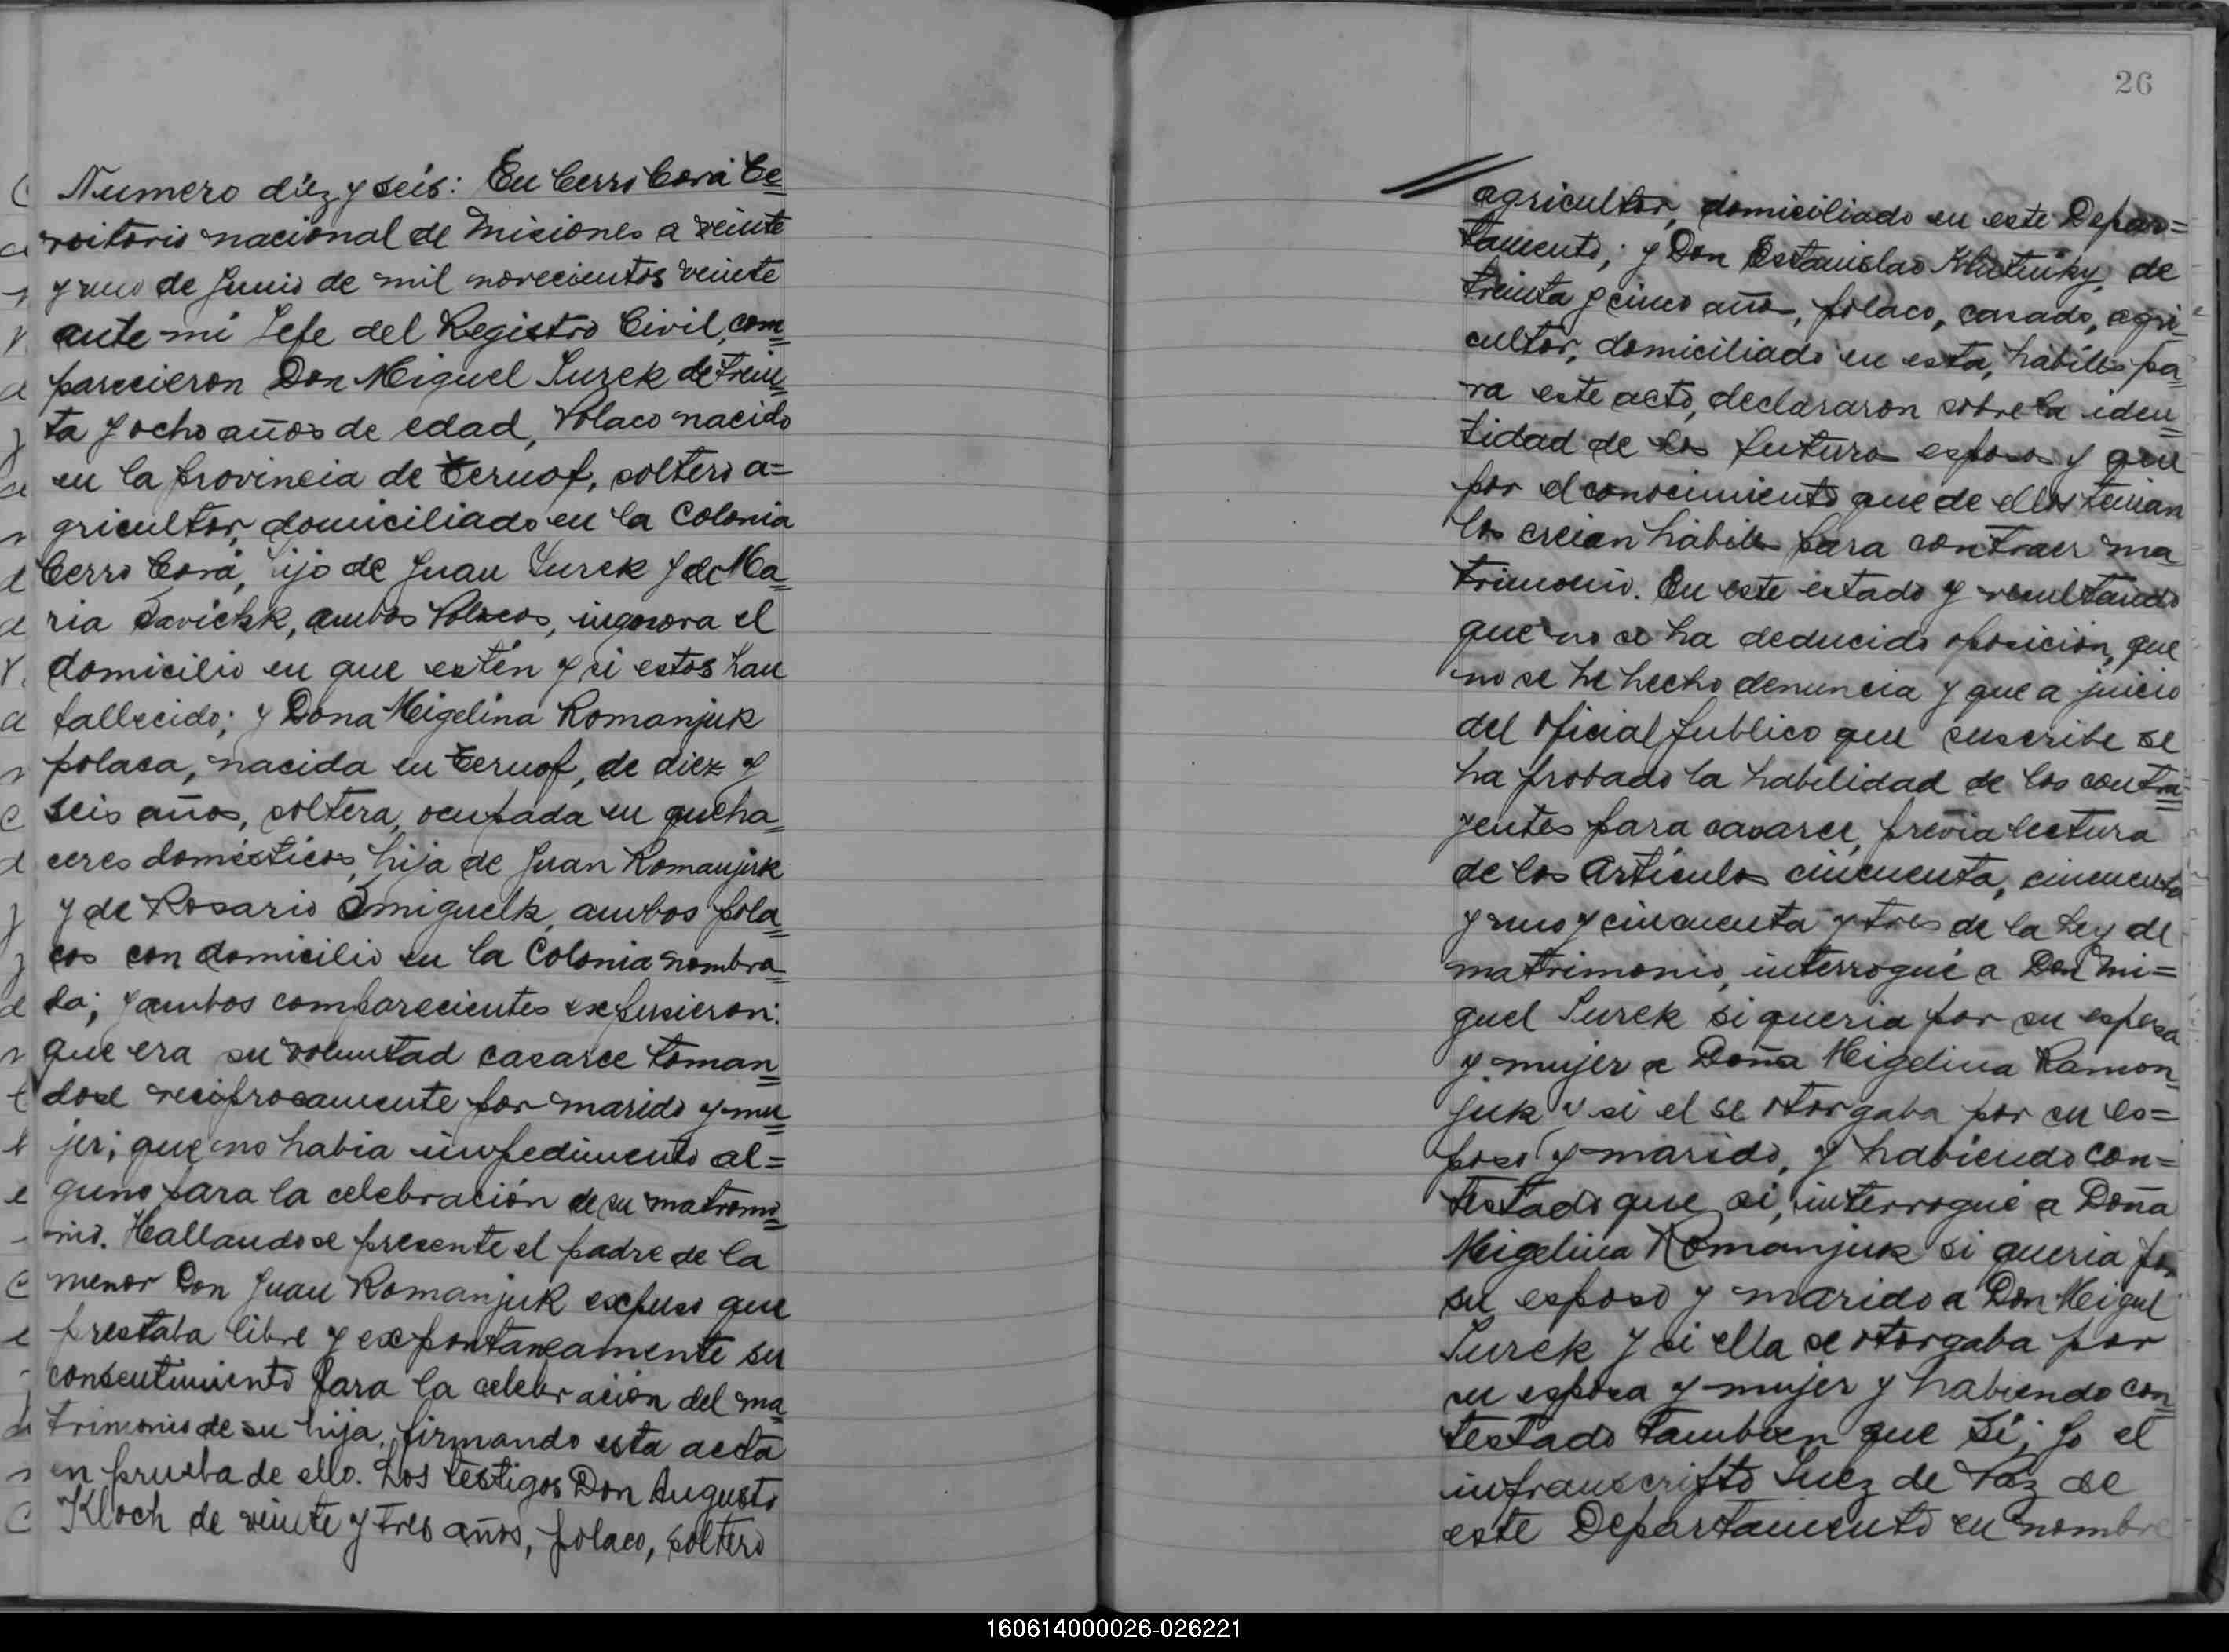 Numero diez y seis: En Cerro Corá Te=
rritorio nacional de Misiones a veinte
y uno de Junio de mil novecientos veinte
ante mi Jefe del Registro Civil, com=
parecieron Don Miguel Surek de trein=
ta y ocho años de edad, Polaco nacido
en la provincia de Ternof, soltero a=
gricultor, domiciliado en la Colonia
Cerro Corá, ijo de Juan Surek y de Ma=
ria ambos Polacos, ingorora el
domicilio en que estén y si estos han
fallecido; y Dona Migelina Romanjuk
polaca, nacida en Ternof, de diez y
seis años, soltera, ocupada en queha=
ceres domésticos, hija de Juan Romanjuk
y de Rosario ambos pola=
cos con domicilio en la Colonia nombra=
da; y ambos comparecientes expusieron:
que era su voluntad casarce toman=
dose reciprocamente por marido y mu=
jer; que no habia impedimento al=
guno para la celebración de su matromo=
nio. Hallandose presente el padre de la
menor Don Juan Romanjuk expuso que
prestaba libre y expontaneamente su
consentimiento para la celebración del ma=
trimonio de su hija, firmando esta acta
en prueba de ello. Los testigos Don Augusto
Kloch de veinte y tres años, polaco, soltero
26
agricultor, domiciliado en este Depar=
tamento; y Don Estanislao de
treinta y cinco años, polaco, casado, agri=
cultor, domiciliado en esta, hábiles pa=
ra este acto, declararon sobre la iden=
tidad de los futuros esposos y que
por el conocimiento que de ellos tenian
los creian hábiles para contraer ma
trimonio. En este estado y resultando
que no se ha deducido oposición, que
no se he hecho denuncia y que a juicio
del oficial publico que suscribe se
ha probado la habilidad de los contra=
yentes para casarce, previa lectura
de los Artículos cincuenta, cincuenta
y uno y cincuenta y tres de la Ley de
matrimonio, interrogué a Don Mi=
guel Surek si queria por su esposa
y mujer a Doña Migelina Ramon=
juk y si el se otorgaba por su es=
poso y marido, y habiendo con=
testado que si, interrogué a Doña
Migelina Romanjuk si queria por
su esposo y marido a Don Miguel
Surek y si ella se otorgaba por
su esposa y mujer y habiendo con=
testado tambien que Sí; Yo el
infranscripto Juez de Paz de
este Departamento en nombre
160614000026-026221